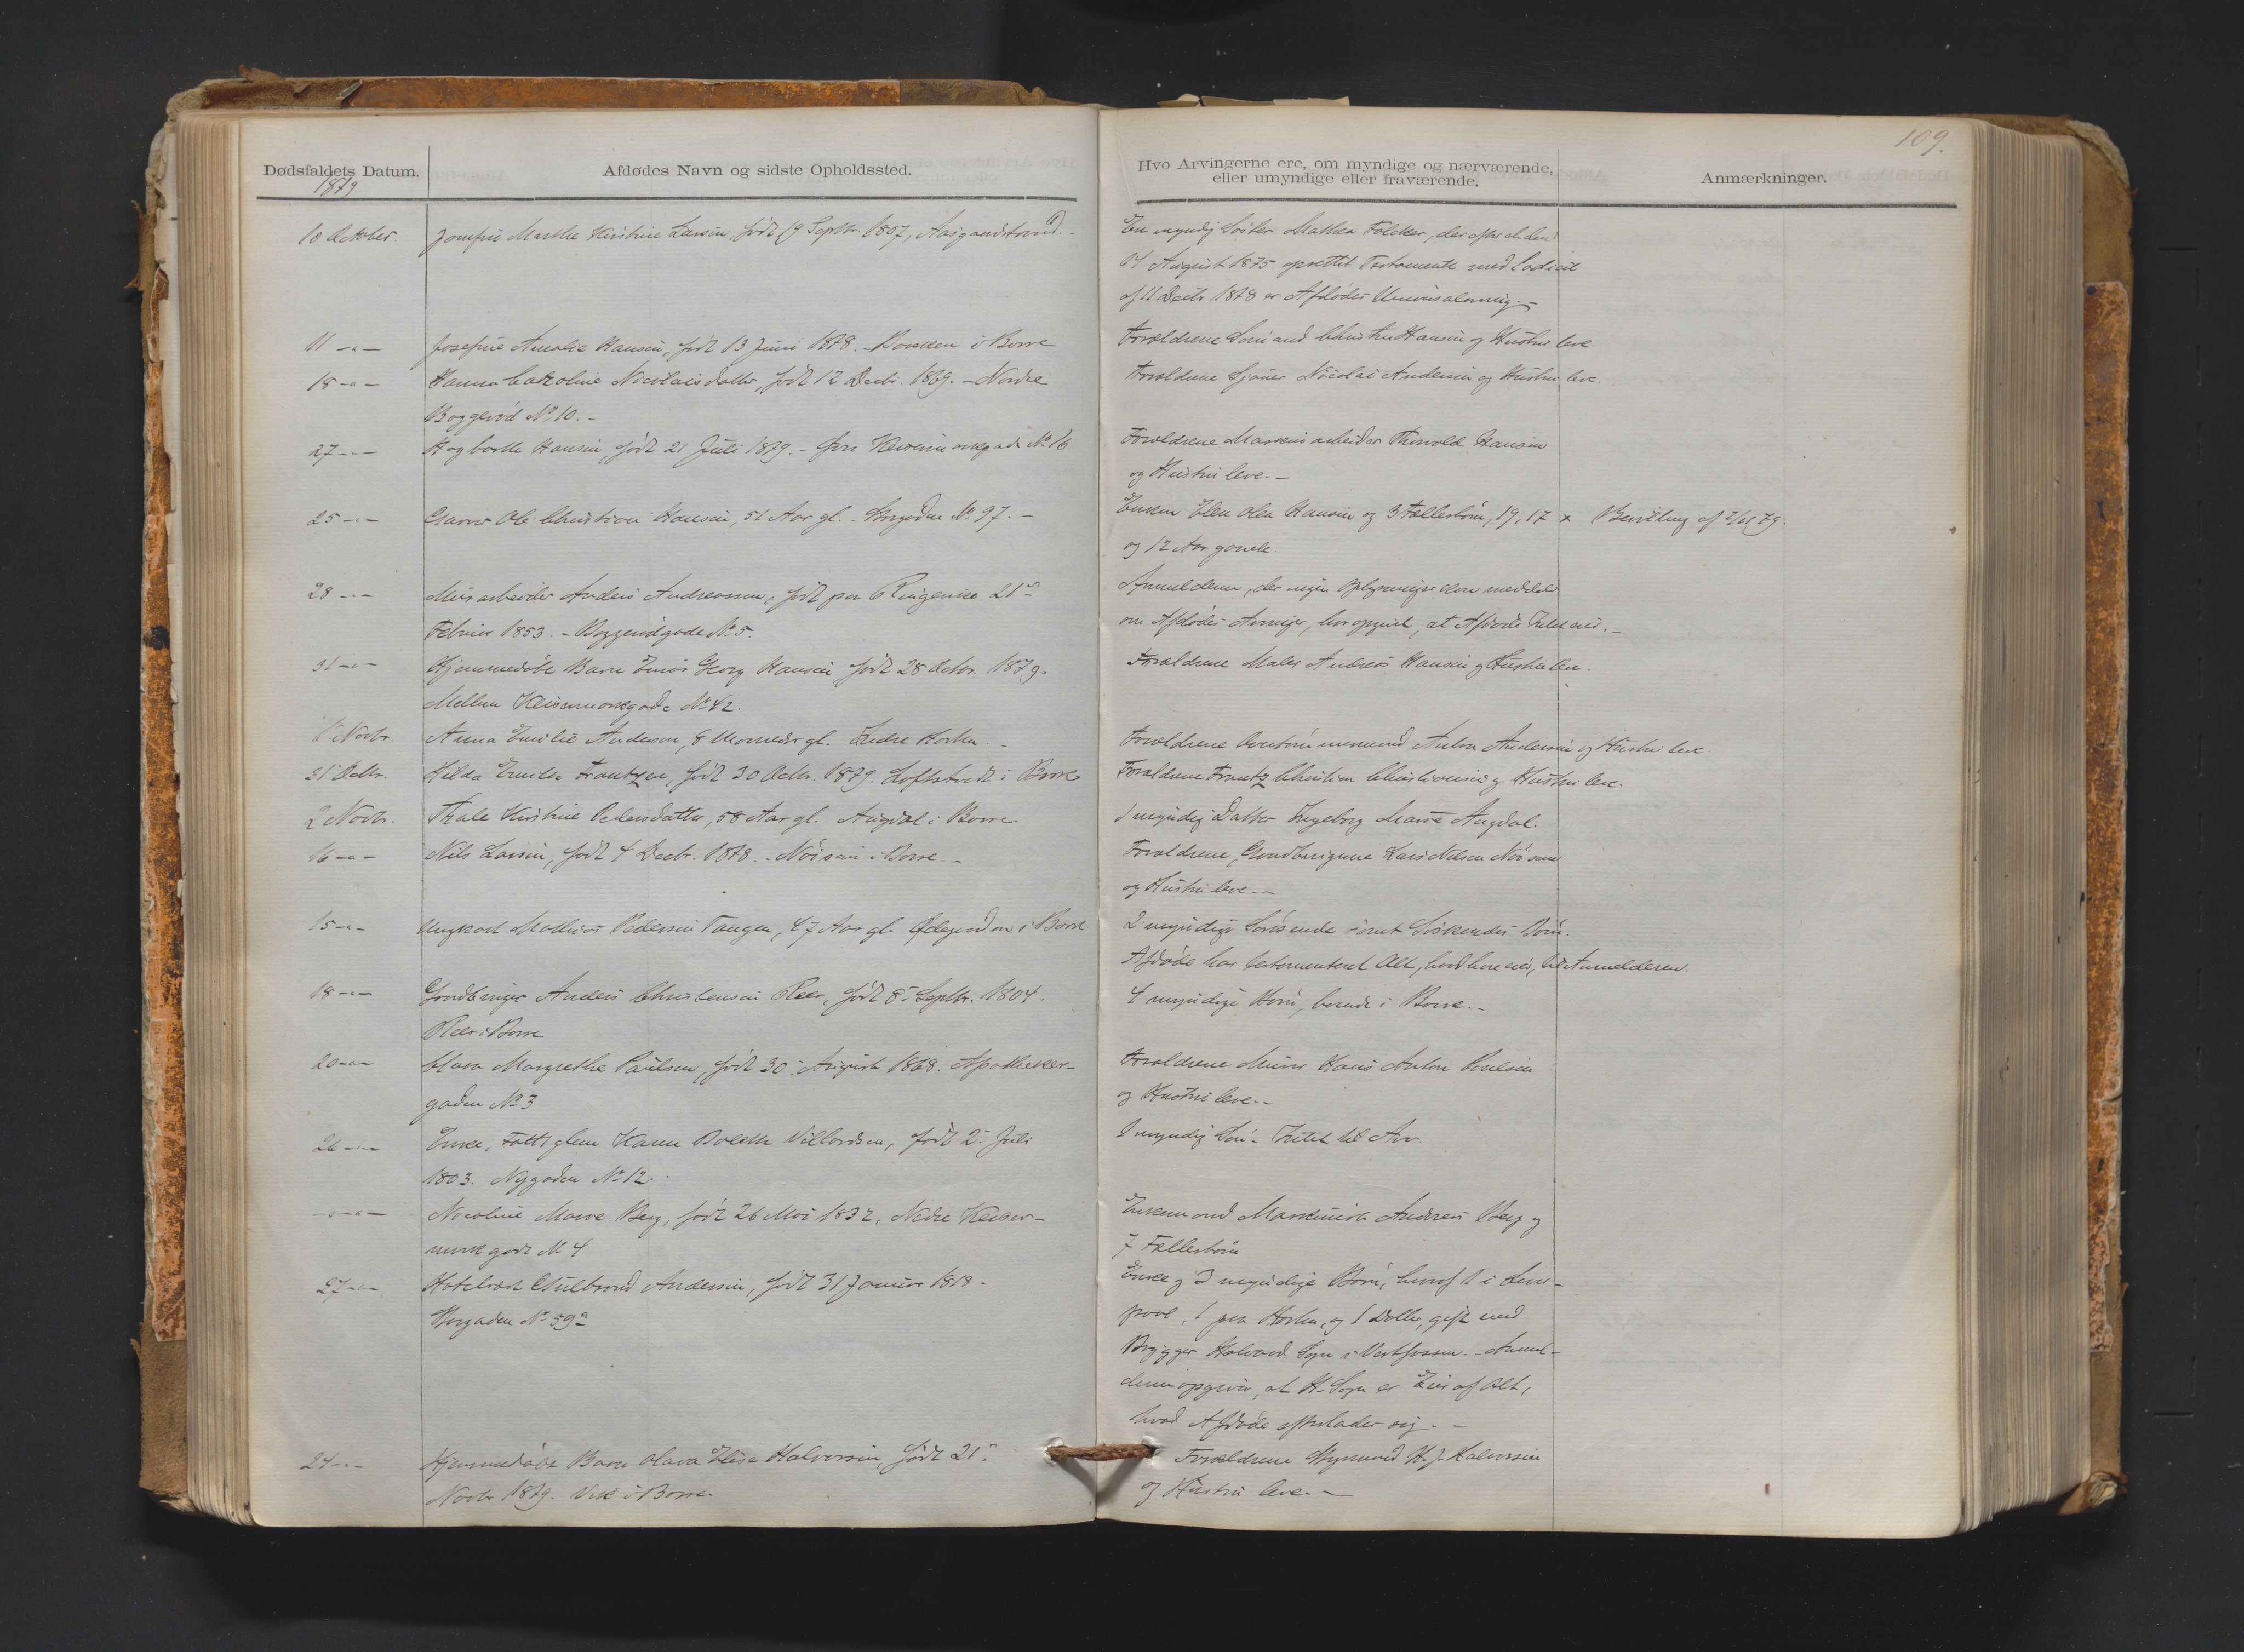 109.
Dødsfaldets Datum.
1879
Afdødes Navn og sidste Opholdssted.
Hvo Arvingerne ere, om myndige og nærværende,
eller umyndige eller fraværende.
Anmærkninger.
10 October.
Marthe Kirstine Larsen, født 19 Septbr. 1807, Aasgaardstrand.
En myndig Søster Mathea Folcker, der efter et den
14 August 1875 oprettet Testamente med Codicil
af 11 Decbr. 1878 er Afdødes Universalarving.
11 -"-
Josefine Amalie Hansen, født 13 Juni 1878. i Borre
Forældrene Sømand Christen Hansen og Hustru leve.
18 -"-
Hanna Caroline Nicolaisdatter, født 12 Decbr. 1869. - Nordre
Baggerød No 10. -
Forældrene Sjouer Nicolai Andersen og Hustru leve.
27 -"-
Hansen, født 21 Juli 1879. - No 16
Forældrene Thorvald Hansen
og Hustru leve. -
25 -"-
Garver Ole Christian Hansen, 51 Aar gl. - Storgaden No 97. -
Enken Elen Olea Hansen og 3 Fællesbørn, 19, 17
og 12 Aar gamle.
x Bevilling af 79.
28 -"-
Anders Andreassen, født paa Ringerike 21de
Februar 1853. - Baggerødgade No 5.
Anmelderen, der ingen Oplysninger kan meddele
om Afdødes Arvinger, har opgivet, at Afdøde Intet eied. -
31 -"-
Hjemmedøbt Barn Georg Hansen født 28 Octbr. 1879.
Mellem Keisermarkgade No 42.
Forældrene Maler Andreas Hansen og Hustru leve.
1 Novbr.
Anna Emilie Andersen, 8 Maaneder gl. Indre Horten. -
Forældrene Anton Andersen og Hustru leve.
31 Octbr.
Hilda Emilie Frantzen, født 30 Octbr. 1879. i Borre
Forældrene Frantz Christian Christiansen og Hustru leve.
2 Novbr.
Thale Kirstine Pedersdatter, 58 Aar gl. Augdal i Borre.
1 myndig Datter Ingeborg Marie Augdal.
16 -"-
Nils Larsen, født 4 Decbr. 1878. - i Borre. -
Forældrene, Gaardbrugerne Lars Nilsen
og Hustru leve. -
15 -"-
Ungkarl Mathias Pedersen Tangen, 47 Aar gl. Ødegaarden i Borre.
2 myndige Søskende samt Søskendes Børn.
Afdøde har testamenteret Alt, hvad han eier, til Anmelderen.
18 -"-
Gaardbruger Anders Christensen Reer, født 8de Septbr. 1804.
Reer i Borre
4 myndige Børn, boende i Borre. -
20 -"-
Clara Margrethe Paulsen, født 30 August 1868. Apotheker-
gaden No 3
Forældrene Murer Hans Anton Paulsen
og Hustru leve. -
26 -"-
Enke, Fattiglem Karen Dolethe Villardsen, født 2 Juli
1803. Nygaden No 12. -
1 myndig Søn. - Intet til Arv.
-"-"-
Nicoline Marie Berg, født 26 Mai 1832. Nedre Keiser-
markgade No 4
Enkemand Maskinist Andreas Berg og
7 Fællesbørn
27 -"-
Gulbrand Andersen, født 31 Januar 1818 -
Storgaden No 59a
Enke og 3 myndige Børn, hvoraf 1 i Liver-
pool, 1 paa Horten, og 1 Datter, gift med
Brygger Halvard Sogn i Vestfossen. - Anmel-
deren opgiver, at H. Sogn er Eier af Alt,
hvad Afdøde efterlader sig. -
24 -"-
Hjemmedøbt Barn Olava Elise Halvorsen, født 21de
Novbr. 1879. Vik i Borre.
Forældrene Styrmand H. J. Halvorsen
og Hustru leve. -